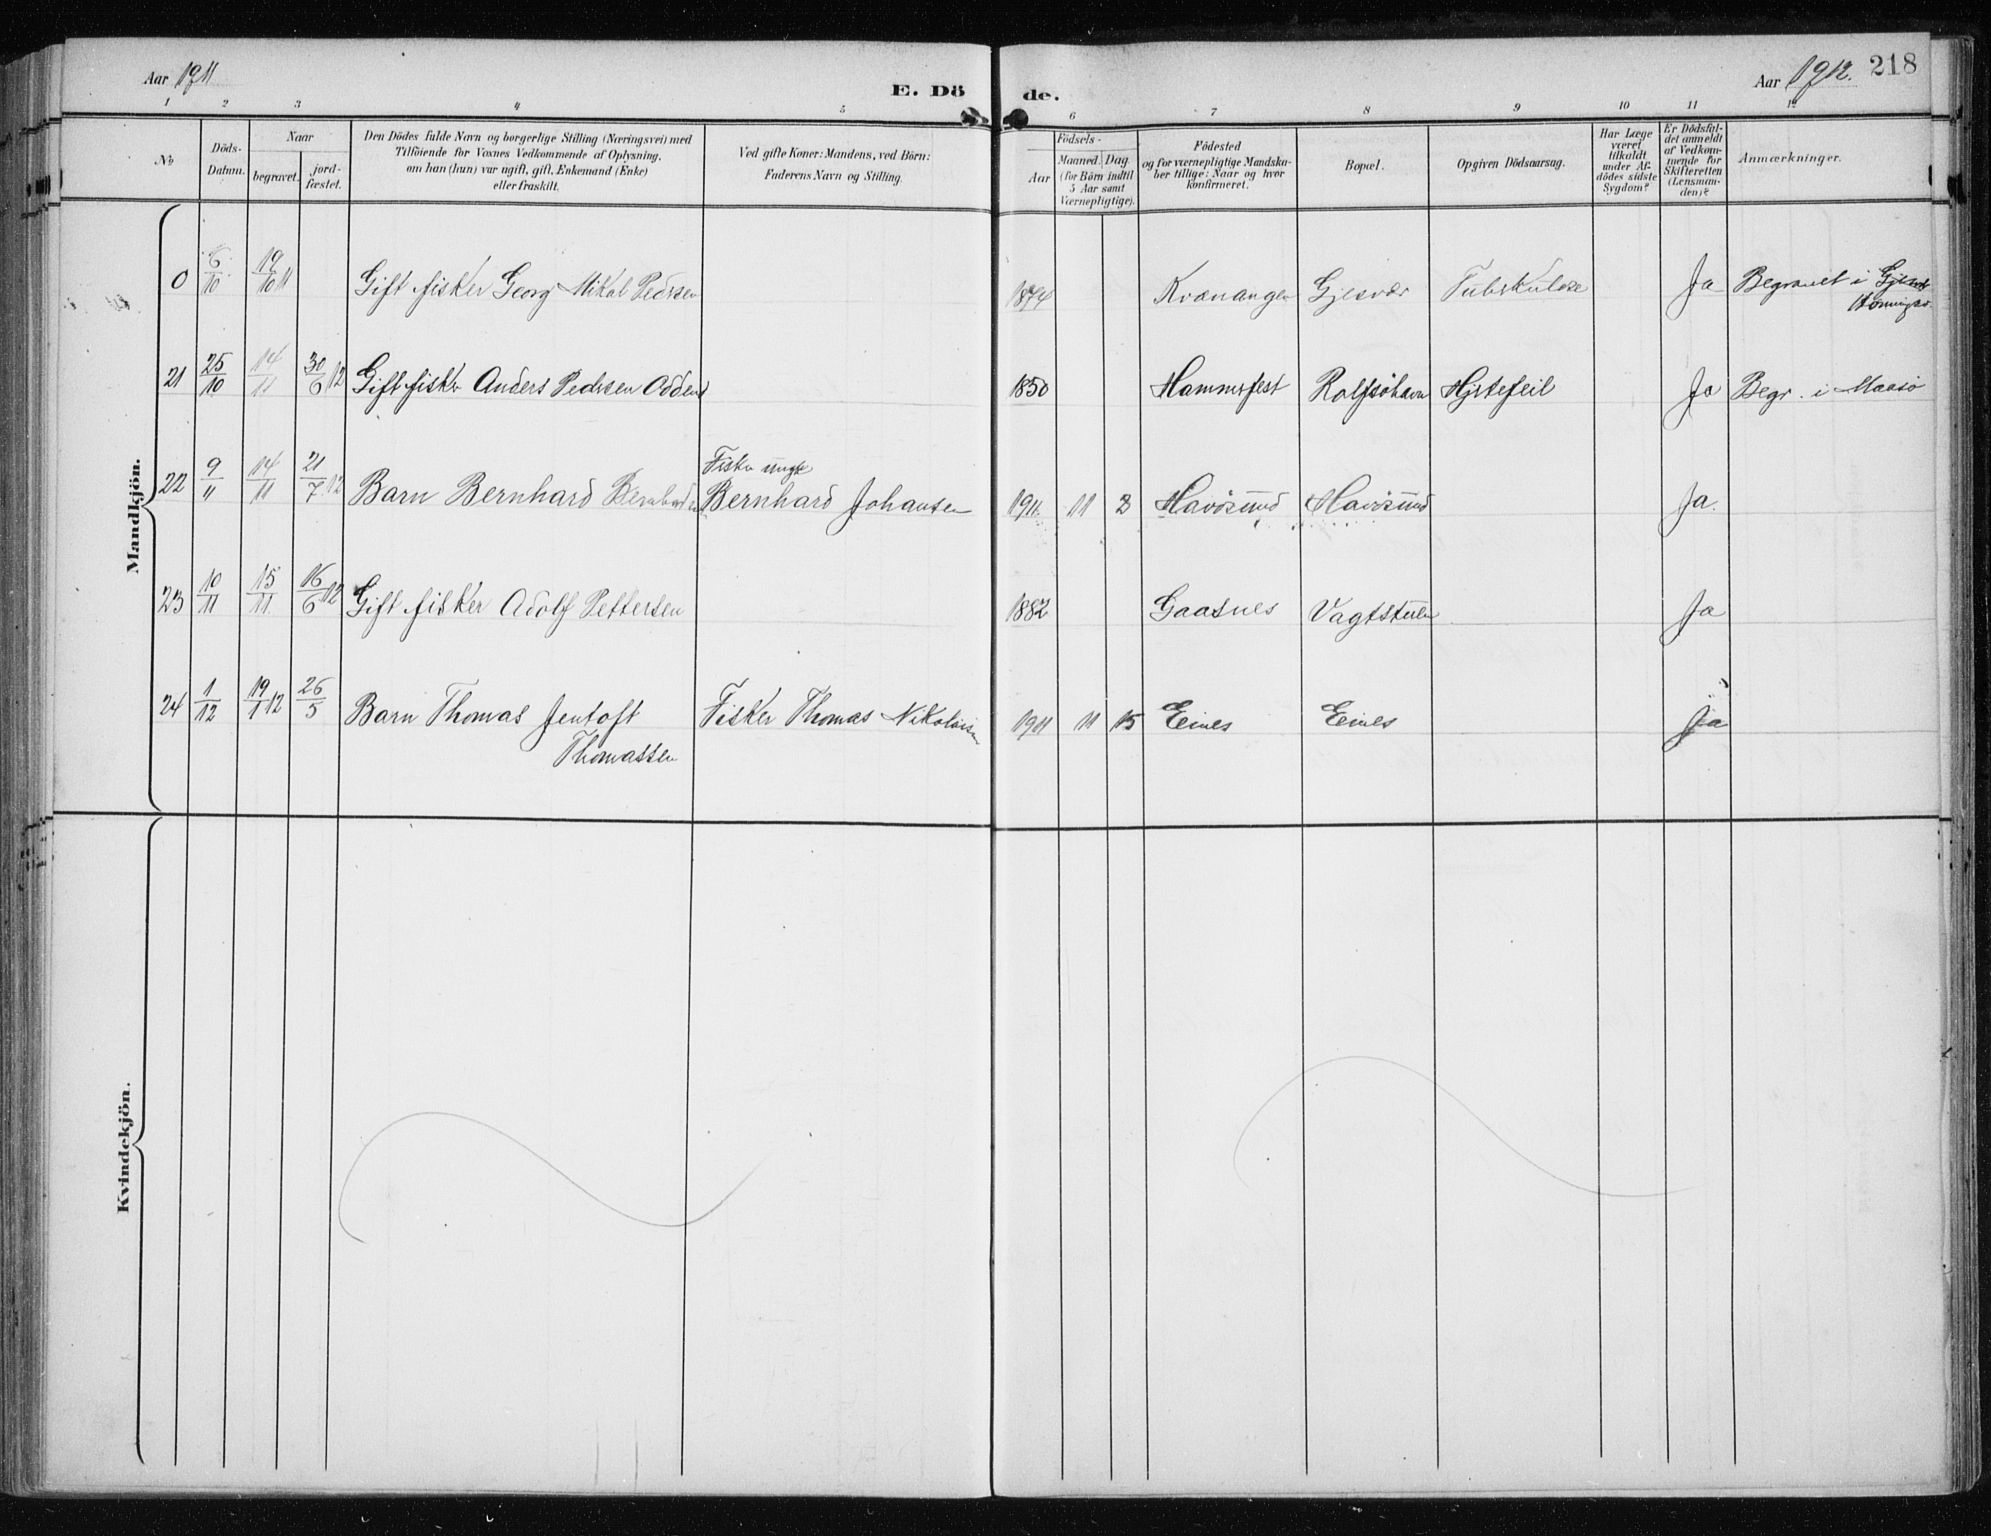 Aar 1911
E. Dö
de.
Aar 1912.
218
1 2 3 4 5 6 7 8 9 10 11 12
No
Döds-
Datum.
Naar
begravet.
jord-
fæstet.
Den Dödes fulde Navn og borgerlige Stilling (Næringsvei) med
Tilföiende for Voxnes Vedkommende af Oplysning,
om han (hun) var ugift, gift, Enkemand (Enke)
eller fraskilt.
Ved gifte Koner: Mandens, ved Börn:
Faderens Navn og Stilling.
Födsels-
Aar
Maaned.
Dag.
(for Börn indtil
5 Aar samt
Værnepligtige).
Födested
og for værnepligtige Mandska-
ber tillige: Naar og hvor
konfirmeret.
Bopæl.
Opgiven Dödsaarsag.
Har Læge
været
tilkaldt
under Af-
dödes sidste
Sygdom?
Er Dödsfal-
det anmeldt
af Vedkom-
mende for
Skifteretten
(Lensman-
den)?
Anmærkninger.
Mandkjön.
0 6/10 19/10 11 Gift fisker Georg Mikal Pedersen 1874 Kvænangen Gjesvær Tuberkulose Ja Begravet i
Honningsv.
21 25/10 14/11 30/6 12 Gift fisker Anders Pedersen Odden 1850 Hammerfest Rolfsöhavn Hjertefeil Ja Begr. i Maasö
Fisker ungk
22 9/11 14/11 21/7 12 Barn Bernhard Bernhardsen Bernhard Johansen 1911 11 2 Havösund Havösund Ja.
23 10/11 15/11 16/6 12 Gift fisker Adolf Pettersen 1882 Gaasnes Vagtstuen Ja
24 1/12 19/1 12 26/5 Barn Thomas Jentoft Fisker Thomas Nikolaisen 1911 11 15 Eines Eines Ja
Thomassen
Kvindekjön.